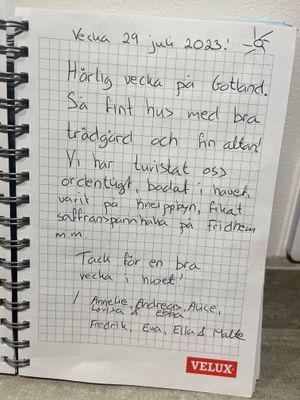 Vecka 29 juli 2023!
Härlig vecka på Gotland.
Så fint hus med bra
trädgård och fin altan!
Vi har turistat oss
ordentligt, badat i havet,
varit på Kneippbyn, fikat
saffranspannkaka på Fridhem
m.m
Tack för en bra
vecka i huset!
/ Annelie, Andreas, Alice,
Lovisa & Ebba
Fredrik, Eva, Ella & Malte
VELUX